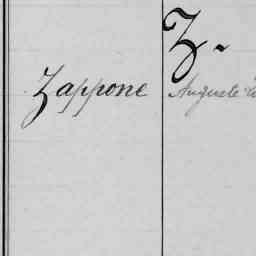 Z.
Zappone Auguste